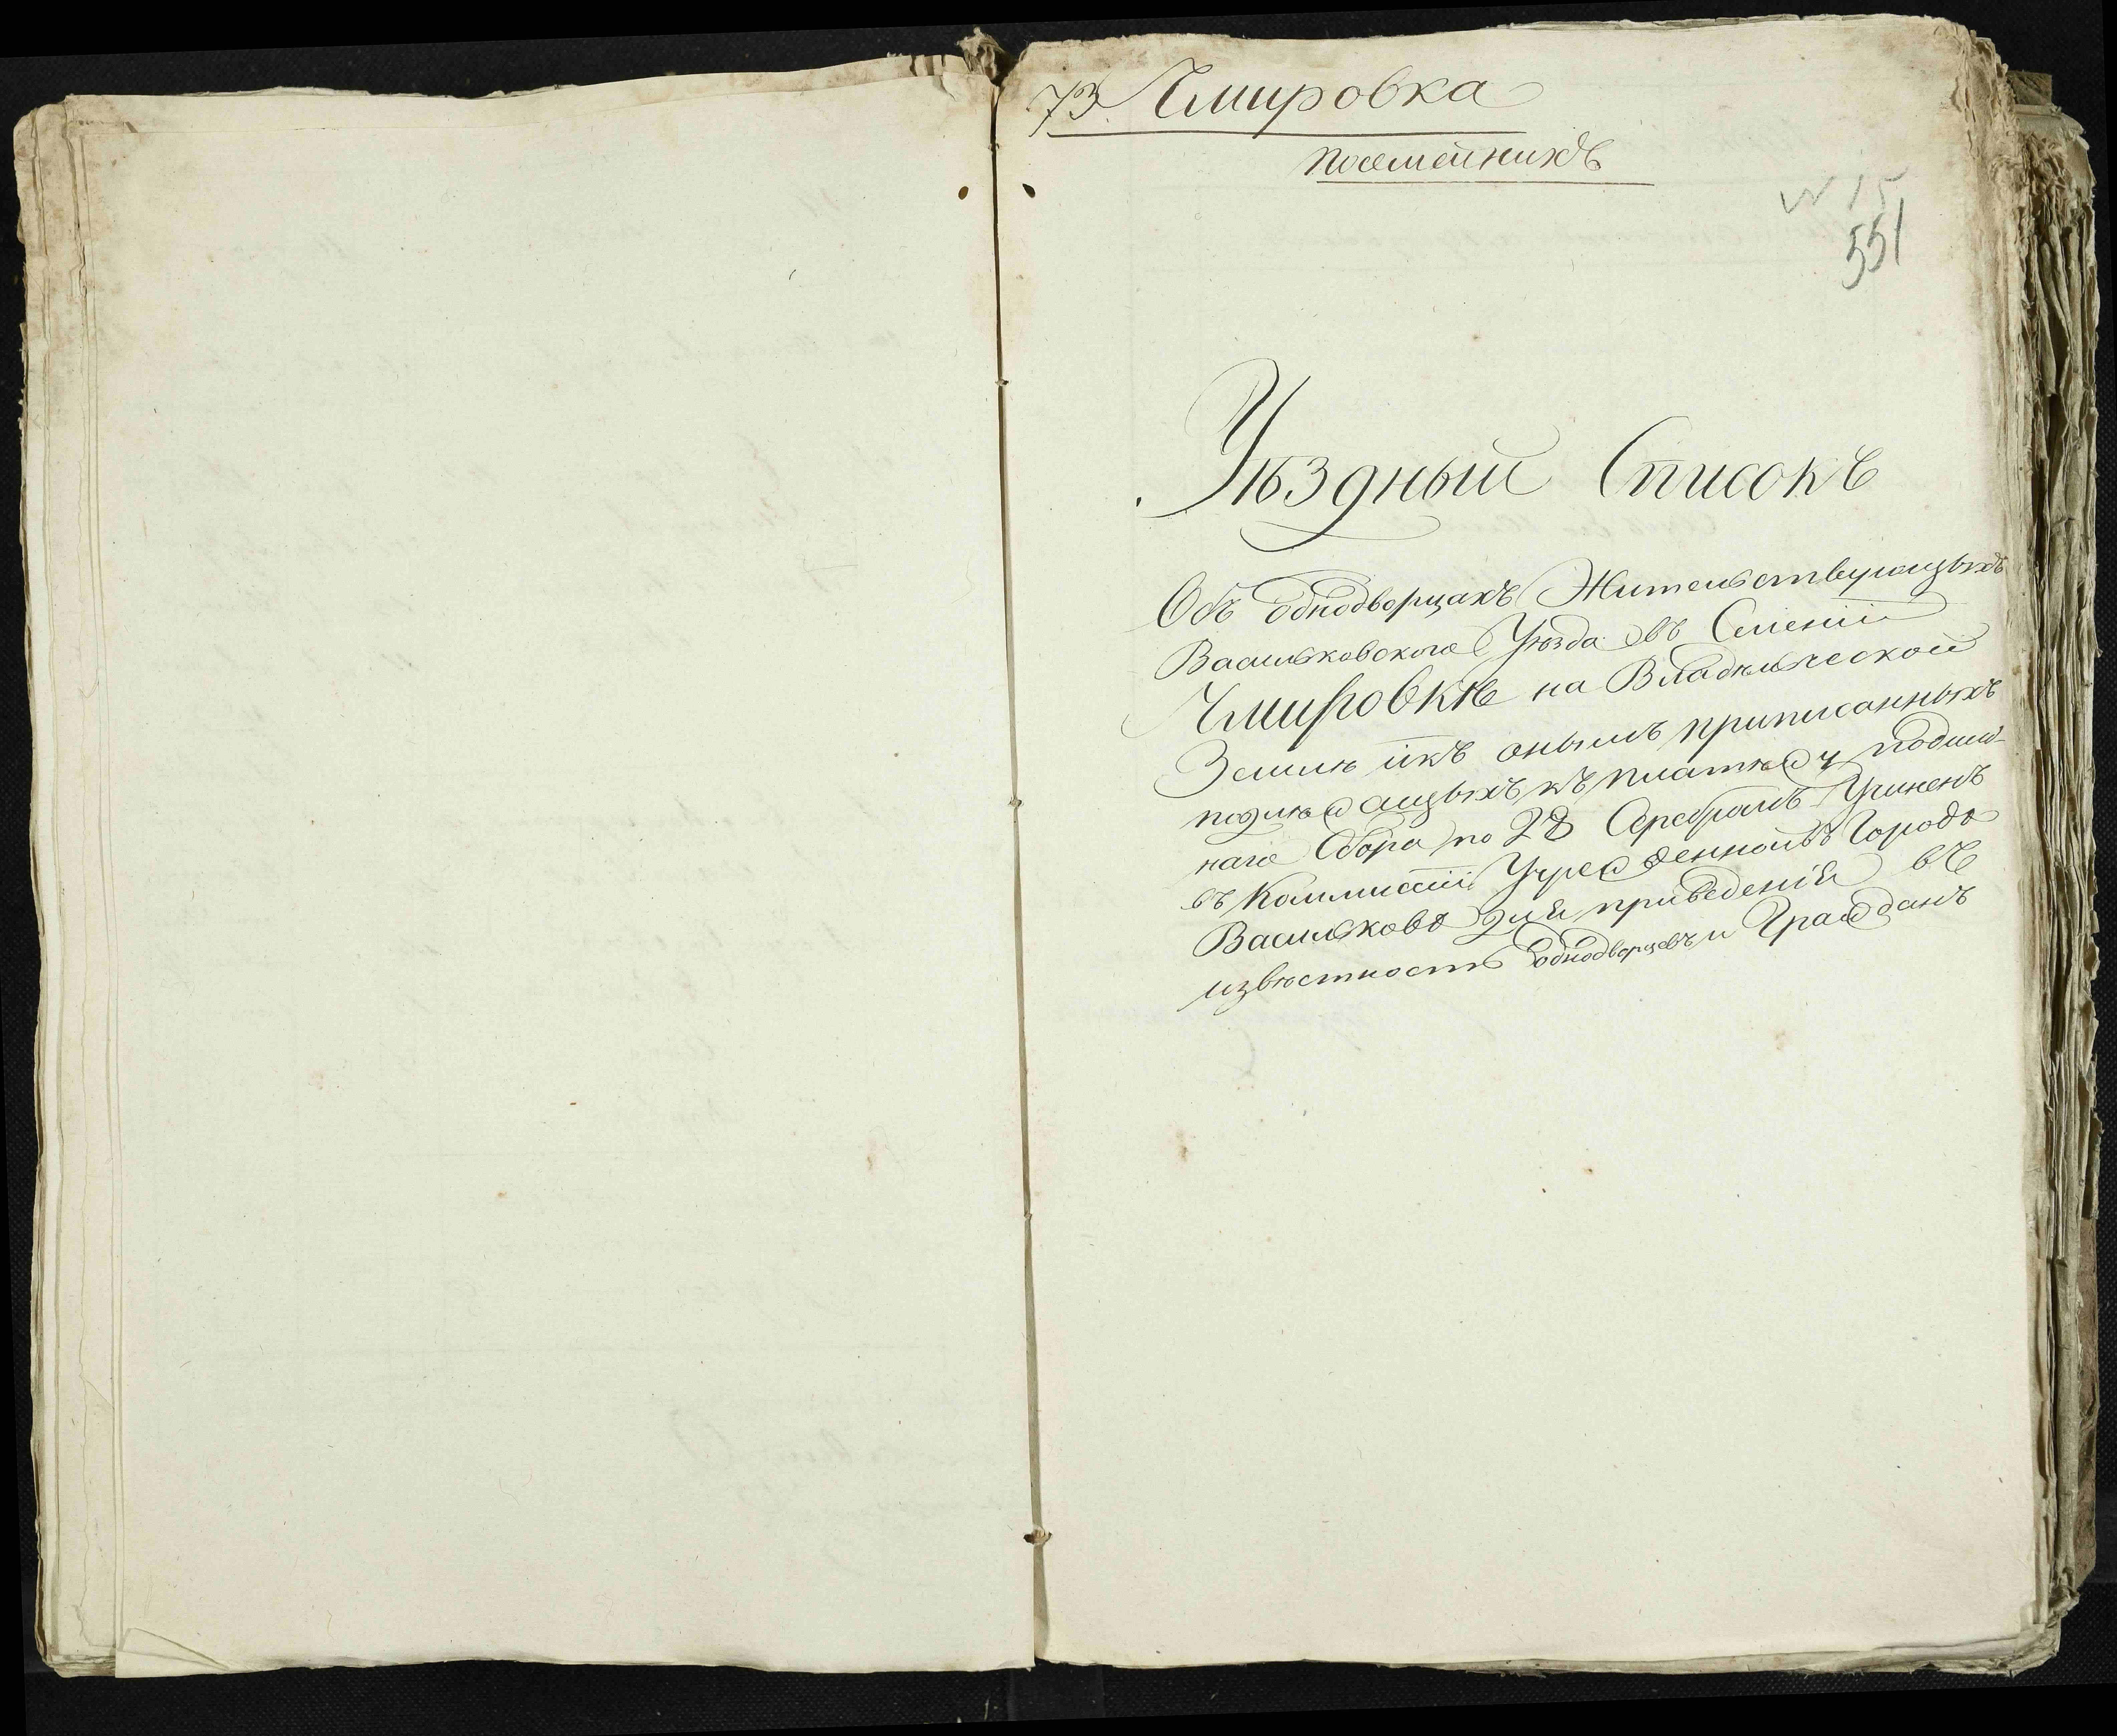 73. Чмировка
Посемейникъ
№ 15
551
Уѣздный Списокъ
Объ однодворцахъ Жительствующыхъ
Васильковского Уѣзда въ Селеніи
Чмировкѣ на Владѣльческой
Землѣ икъ онымъ приписанныхъ
подлежащыхъ къ платежу подым-
наго Сбора по 2 Серебромъ Учиненъ
въ Коммисіи Учрежденной въ Городѣ
Васильковѣ для приведенія въ
извѣстность однодворцевъ и Гражданъ